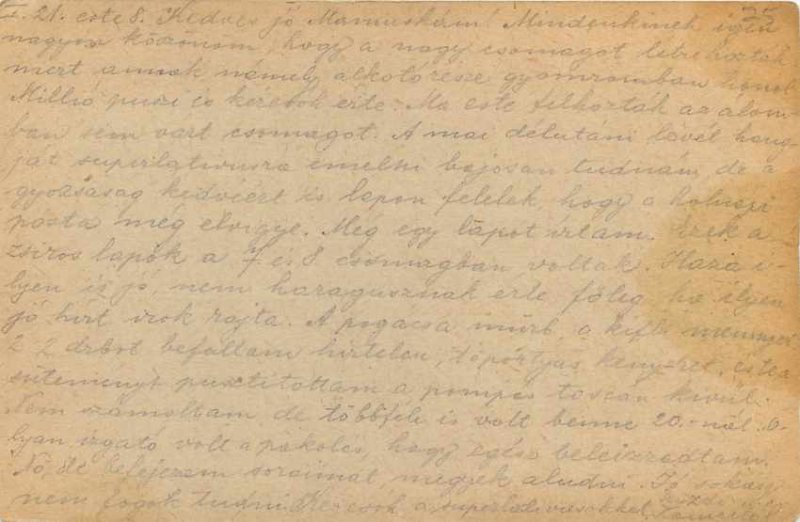 21. este 8. Kedves jó Mamuskám! Mindenkinek igen
nagyon köszönöm, hogy a nagy csomagot létrehozták
mert annak némely alkotórésze gyomromban honol.
Millió puszi és kézcsók érte. Ma este félhozták az álom-
ban sem várt csomagot. A mai délutáni levél hang-
ját superlativusra emelni bajosan tudnám, de a
gyorsaság kedvéért is lapon felelek, hogy a holnapi
posta még elvigye. Még egy lapot írtam. Ezek a
zsíros lapok a 7 és 8 csomagban voltak. Haza i-
lyen is jó, nem haragusznak érte főleg, ha ilyen
jó hírt írok rajta. A pogácsa műrb, a kifli mennyei
2 2 drbot befaltam hirtelen, töpörtyűs kenyeret, és tea
süteményt pusztítottam a pompás toscan kívül.
Nem számoltam de többféle is volt benne 20.-nál. O-
lyan izgató volt a pakolás, hogy egész beleizzadtam.
No, de befejezem soraimat, megyek aludni. Jó sokáig
nem fogok tudni. Kézcsók a superlativusokkal,